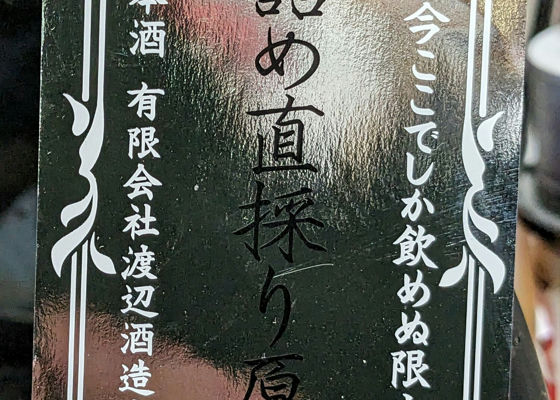 今ここでしか飲めぬ限
詰め直採り原
本酒 有限会社渡辺酒造